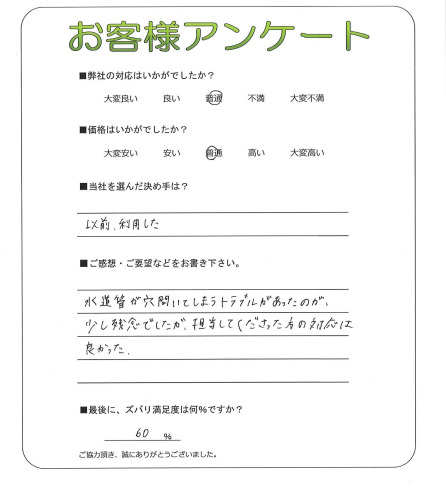 お客様アンケート
■弊社の対応はいかがでしたか？
大変良い 良い 普通 不満 大変不満
■価格はいかがでしたか？
大変安い 安い 普通 高い 大変高い
■当社を選んだ決め手は？
以前、利用した
■ご感想・ご要望などをお書き下さい。
水道管が穴開いてしまうトラブルがあったのが、
少し残念でしたが、担当してくださった方の対応は
良かった。
■最後に、ズバリ満足度は何%ですか？
60 %
ご協力頂き、誠にありがとうございました。